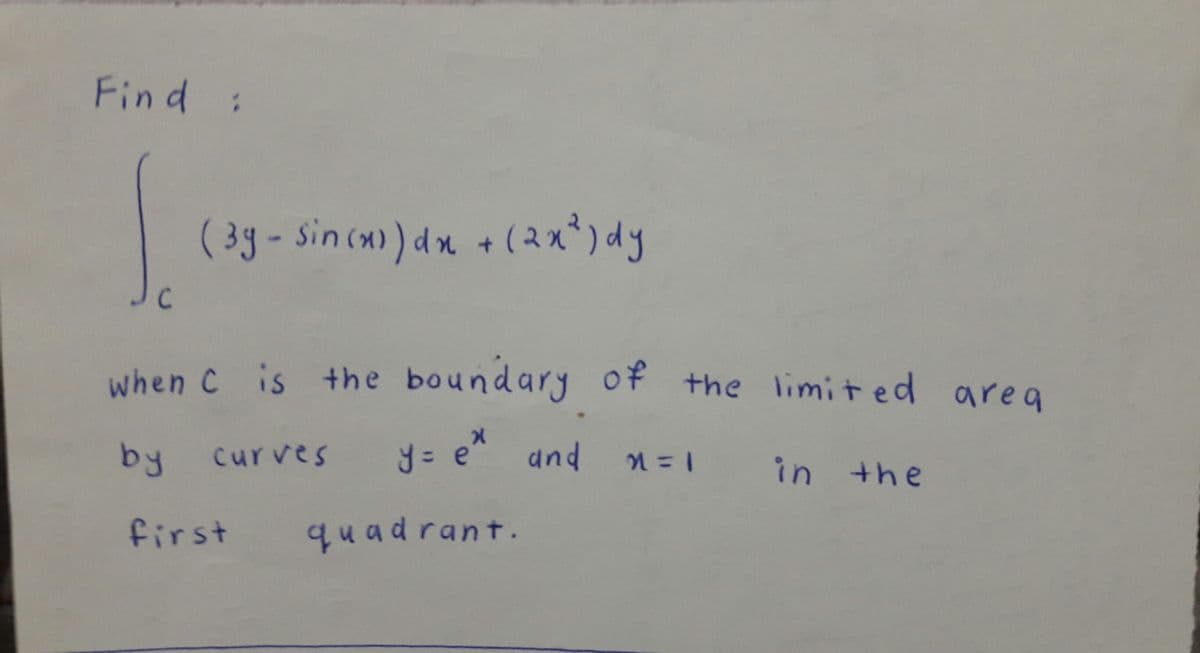 Find :
∫_C (3y - sin(x)) dx + (2x²) dy
when C is the boundary of the limited area
by curves y = e^x and x = 1 in the
first quadrant.